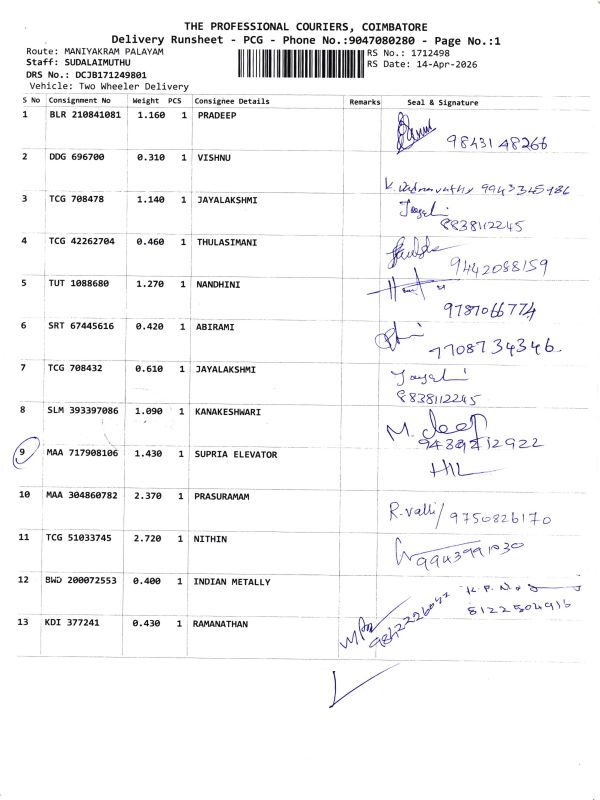 THE PROFESSIONAL COURIERS, COIMBATORE
Delivery Runsheet - PCG - Phone No.:9047080280 - Page No.:1
Route: MANIYAKRAM PALAYAM RS No.: 1712498
Staff: SUDALAIMUTHU RS Date: 14-Apr-2026
DRS No.: DCJB171249801
Vehicle: Two Wheeler Delivery
S No Consignment No Weight PCS Consignee Details Remarks Seal & Signature
1 BLR 210841081 1.160 1 PRADEEP
9843148266
2 DDG 696700 0.310 1 VISHNU
9943345186
3 TCG 708478 1.140 1 JAYALAKSHMI
8838112245
4 TCG 42262704 0.460 1 THULASIMANI
9442088159
5 TUT 1088680 1.270 1 NANDHINI
9787066774
6 SRT 67445616 0.420 1 ABIRAMI
7708734346
7 TCG 708432 0.610 1 JAYALAKSHMI
8838112245
8 SLM 393397086 1.090 1 KANAKESHWARI
M.
9 MAA 717908106 1.430 1 SUPRIA ELEVATOR
10 MAA 304860782 2.370 1 PRASURAMAM
R.valli/ 9750826170
11 TCG 51033745 2.720 1 NITHIN
9943991030
12 BWD 200072553 0.400 1 INDIAN METALLY
8122504916
13 KDI 377241 0.430 1 RAMANATHAN